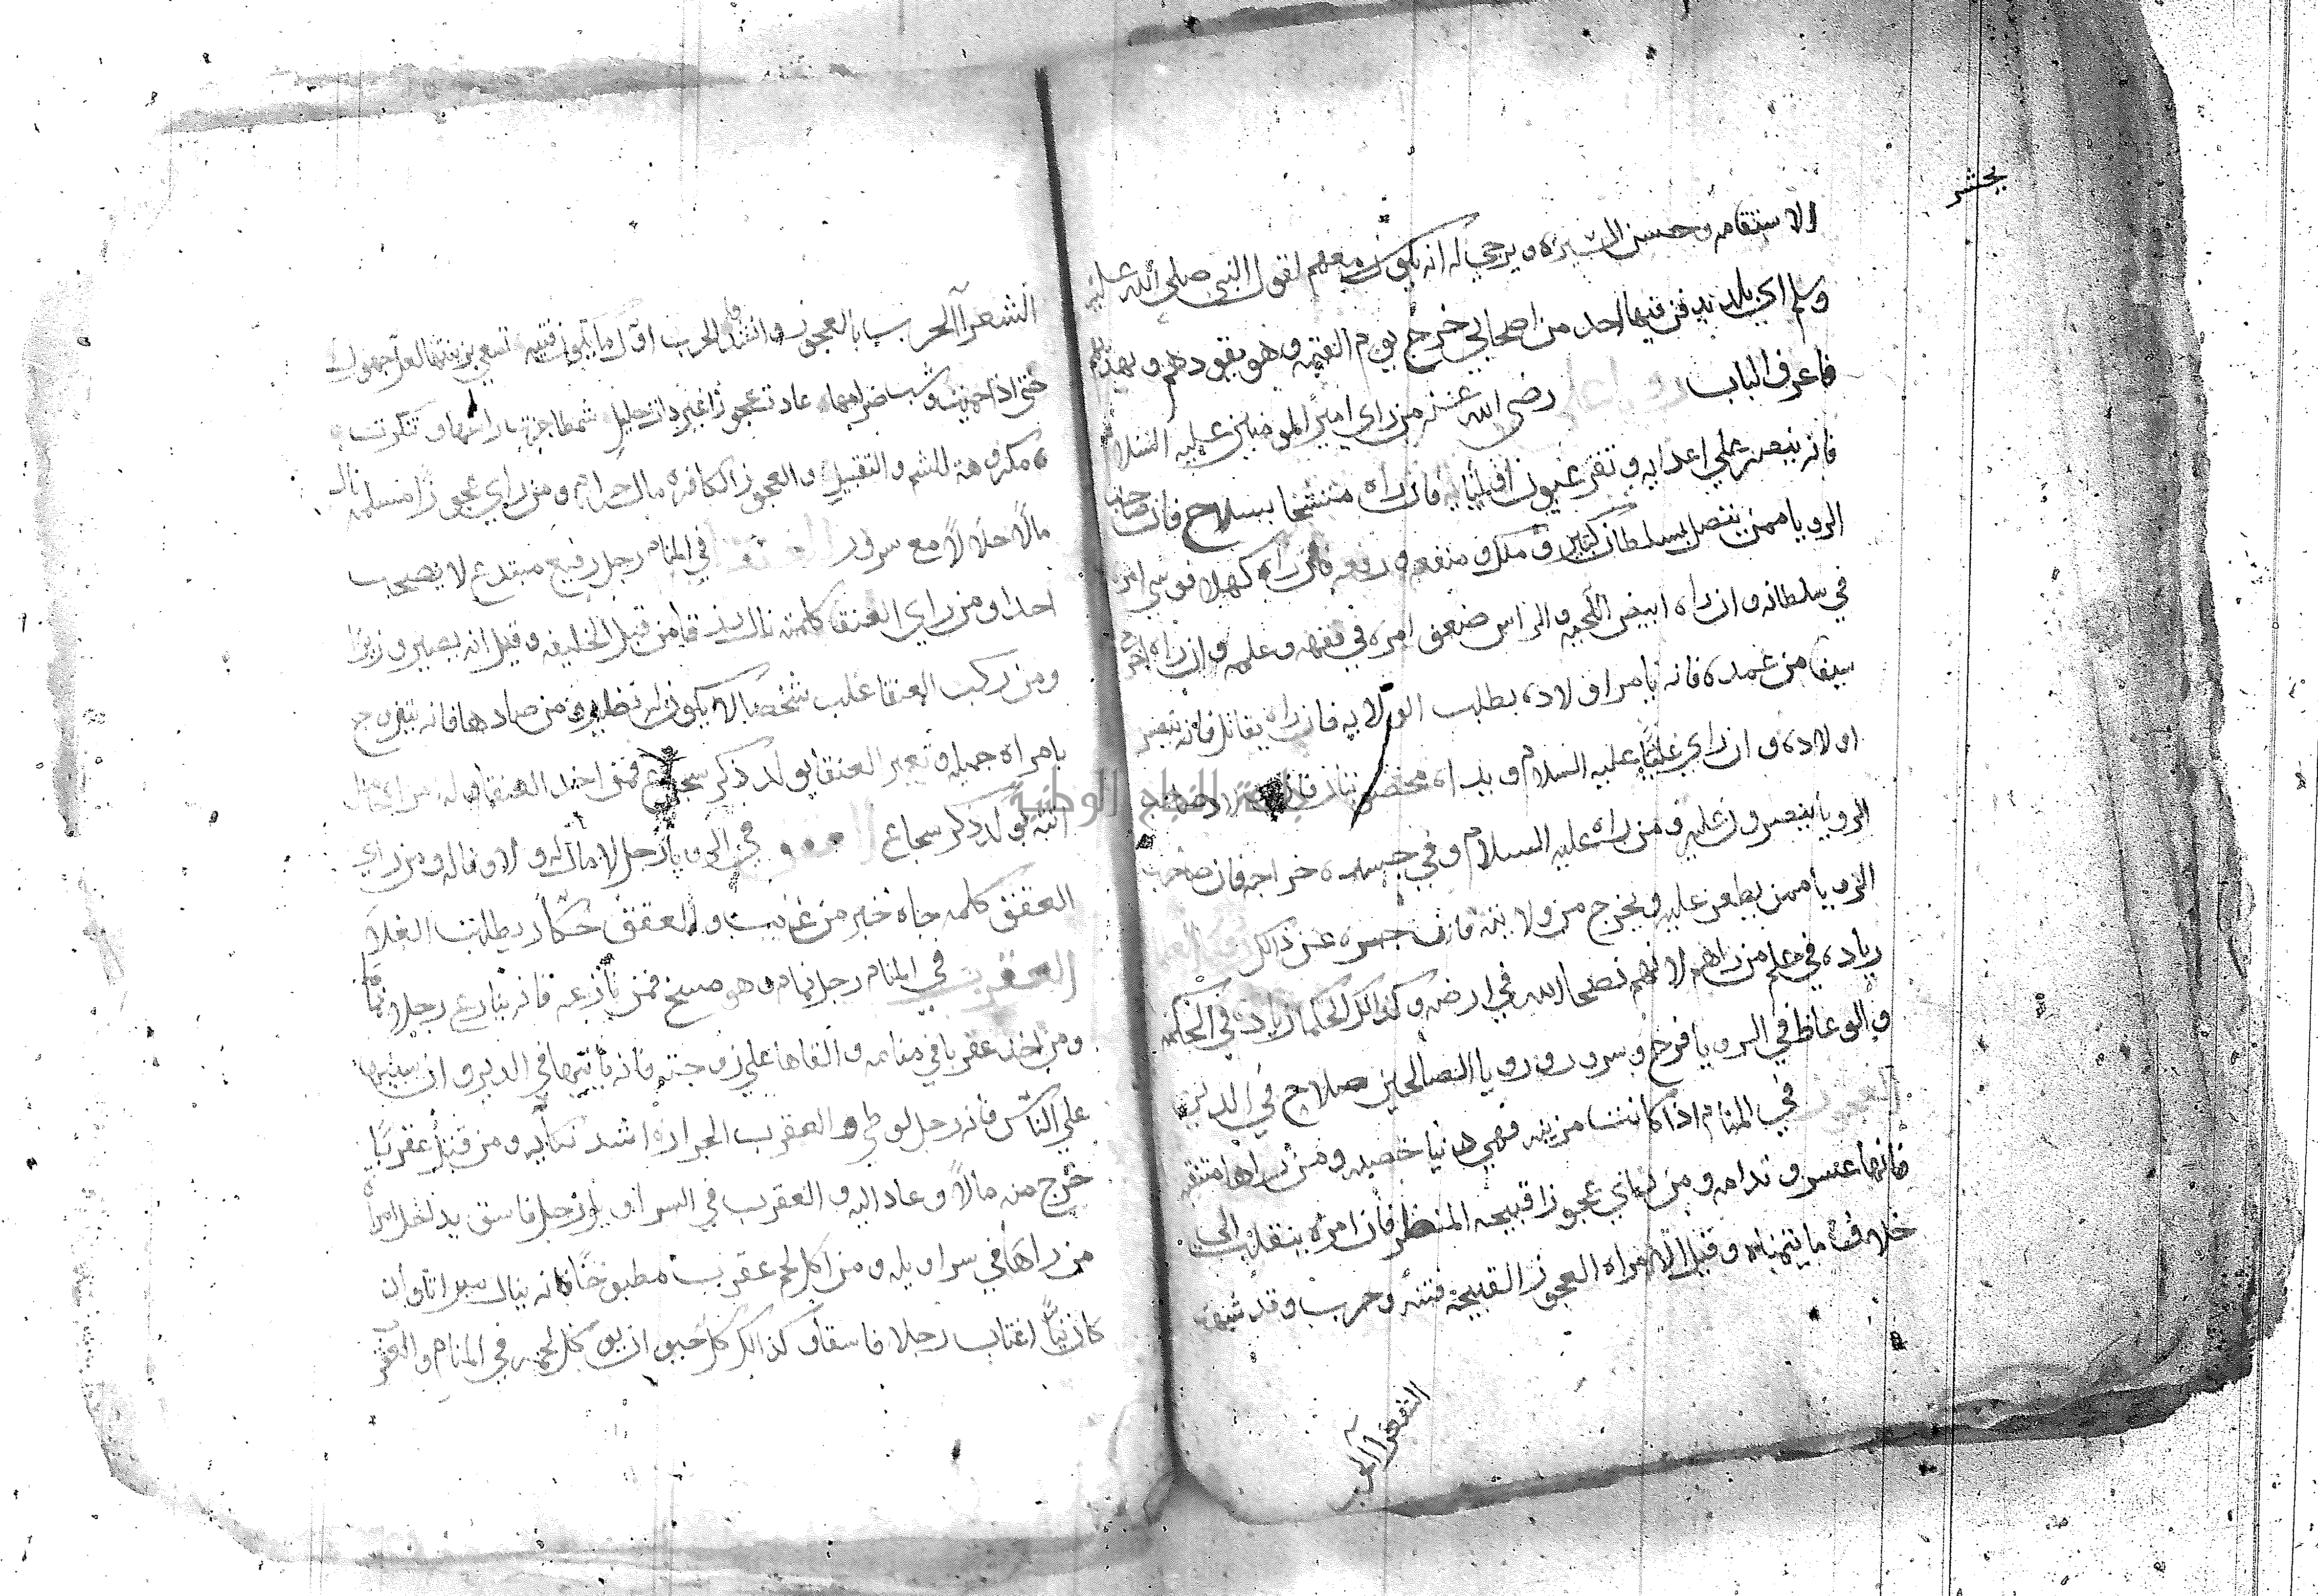 يحشر
الاستقامه وحسن السيره ويرجي له انه يكون معهم لقول النبي صلي الله عليه
وسلم اي بلد يدفن فيها احد من اصحابي خرج يوم القيمه وهو يقودهم ويهديهم
فاعرف الباب رضي الله عنه من راي امير المومنين عليه السلام
فانه ينصر علي اعدايه وتقر عيون اوليايه فان راه متشحا بسلاح فان صاحب
الرويا ممن يتصل بسلطان كبير وملك ومنفعه ورفعه فان راه كهلا قوي امره
في سلطانه وان راه ابيض اللحيه والراس ضعف امره في فقهه وعلمه وان راه اخرج
سيفا من غمده فانه يامر اولاده بطلب الولايه فان راه يقاتل فانه تنصر
اولاده وان راي عليًا عليه السلام ويداه مخضوبتان فان اولاد صاحب
الرويا ينصرون عليه ومن راه عليه السلام وفي جسده خراجه فان صاحب
الرويا ممن يطعن عليه ويخرج من ولايته فان جسره عن ذالك العلما
زياده في علم من راهم لانهم نصحا الله في ارضه وكذالك الحكما زياده في الحكمه
والوعاظ في الرويا فرح وسرور ورويا الصالحين صلاح في الدين
العجوز في المنام اذا كانت مزينه فهي دنيا خصبه ومن راها متنقبه
فانها عسر وندامه ومن راي عجوزا قبيحه المنظر فان امره ينقلب الي
خلاف ما يتمناه وقيل الامراه العجوز القبيحه فتنه وحرب وقد شبهت
الشعرا الحرب
الشعرا الحرب بالعجوز وانشد الحرب اول ما تكون فتيه تسعي بزينتها لكل جهول
حتي اذا حميت وشب ضرامها عادت عجوزا غير ذات حليل شمطا جزت راسها وتنكرت
مكروهة للشم والتقبيل والعجوز الكافره مال حرام ومن راي عجوزًا مسلمه نال
مالًا حلالًا مع سرور العنقا في المنام رجل رفيع مبتدع لا يصحب
احدا ومن راي العنقا كلمته نال رزقا من قبل الخليفه وقيل انه يصير وزيرا
ومن ركب العنقا غلب شخصا لا يكون له نظير ومن صادها فانه يتزوج
بامراه جميله وتعبر العنقا بولد ذكر شجاع فمن اخذ العنقا وله من الحال
اتته بولد ذكر شجاع العقعق في الرويا رجل لا امان له ولا وفا له ومن راي
العقعق كلمه جاه خبر من غايب والعقعق حكار يطلب الغلا
العقرب في المنام رجل نمام وهو مسخ فمن نازعه فانه ينازع رجلا نمامًا
ومن اخذ عقربا في منامه والقاها علي زوجته فانه ياتيها في الدبر وان سيبها
علي الناس فانه رجل لوطي والعقرب الجراره اشد نكايه ومن قتل عقربًا
خرج منه مالًا وعاد اليه والعقرب في السراويل رجل فاسق يداخل امراة
من راها في سراويله ومن اكل لحم عقرب مطبوخًا فانه ينال ميراثا وان
كان نيًا اغتاب رجلا فاسقا وكذالك كل حيوان يوكل لحمه في المنام والعقرب
جامعة النجاح الوطنية